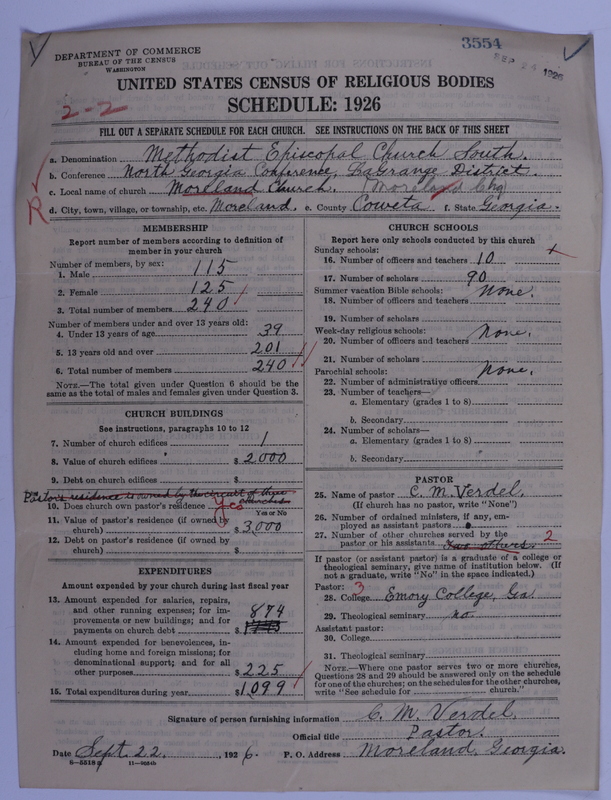 3554
SEP 24 1926
DEPARTMENT OF COMMERCE
BUREAU OF THE CENSUS
WASHINGTON
UNITED STATES CENSUS OF RELIGIOUS BODIES
SCHEDULE: 1926
2-2
FILL OUT A SEPARATE SCHEDULE FOR EACH CHURCH. SEE INSTRUCTIONS ON THE BACK OF THIS SHEET
a. Denomination Methodist Episcopal Church South.
b. Conference North Georgia Conference, LaGrange District.
c. Local name of church Moreland Church. (Moreland Chg)
R
d. City, town, village, or township, etc. Moreland. e. County Coweta f. State Georgia.
MEMBERSHIP
Report number of members according to definition of
member in your church
Number of members, by sex:
1. Male 115
2. Female 125
3. Total number of members 240
Number of members under and over 13 years old:
4. Under 13 years of age 39
5. 13 years old and over 201
6. Total number of members 240
NOTE.—The total given under Question 6 should be the
same as the total of males and females given under Question 3.
CHURCH BUILDINGS
See instructions, paragraphs 10 to 12
7. Number of church edifices 1
8. Value of church edifices $ 2,000
9. Debt on church edifices $
Pastor's residence is owned by the circuit of three
churches
10. Does church own pastor's residence yes
Yes or No
11. Value of pastor's residence (if owned by
church) $ 3,000
12. Debt on pastor's residence (if owned by
church) $
EXPENDITURES
Amount expended by your church during last fiscal year
13. Amount expended for salaries, repairs,
and other running expenses; for im-
provements or new buildings; and for
payments on church debt $ 874
14. Amount expended for benevolences, in-
cluding home and foreign missions; for
denominational support; and for all
other purposes $ 225
15. Total expenditures during year $ 1,099
CHURCH SCHOOLS
Report here only schools conducted by this church
Sunday schools:
16. Number of officers and teachers 10
17. Number of scholars 90
Summer vacation Bible schools: None.
18. Number of officers and teachers
19. Number of scholars
Week-day religious schools: None.
20. Number of officers and teachers
21. Number of scholars
Parochial schools: None.
22. Number of administrative officers
23. Number of teachers—
a. Elementary (grades 1 to 8)
b. Secondary
24. Number of scholars—
a. Elementary (grades 1 to 8)
b. Secondary
PASTOR
25. Name of pastor C. M. Verdel.
(If church has no pastor, write "None")
26. Number of ordained ministers, if any, em-
ployed as assistant pastors
27. Number of other churches served by the 2
pastor or his assistants Two others.
If pastor (or assistant pastor) is a graduate of a college or
theological seminary, give name of institution below. (If
not a graduate, write "No" in the space indicated.)
Pastor: 3
28. College Emory College, Ga.
29. Theological seminary no
Assistant pastor:
30. College
31. Theological seminary
NOTE.—Where one pastor serves two or more churches,
Questions 28 and 29 should be answered only on the schedule
for one of the churches; on the schedules for the other churches,
write "See schedule for church."
Signature of person furnishing information C. M. Verdel.
Official title Pastor.
Date Sept. 22. , 1926. P. O. Address Moreland, Georgia.